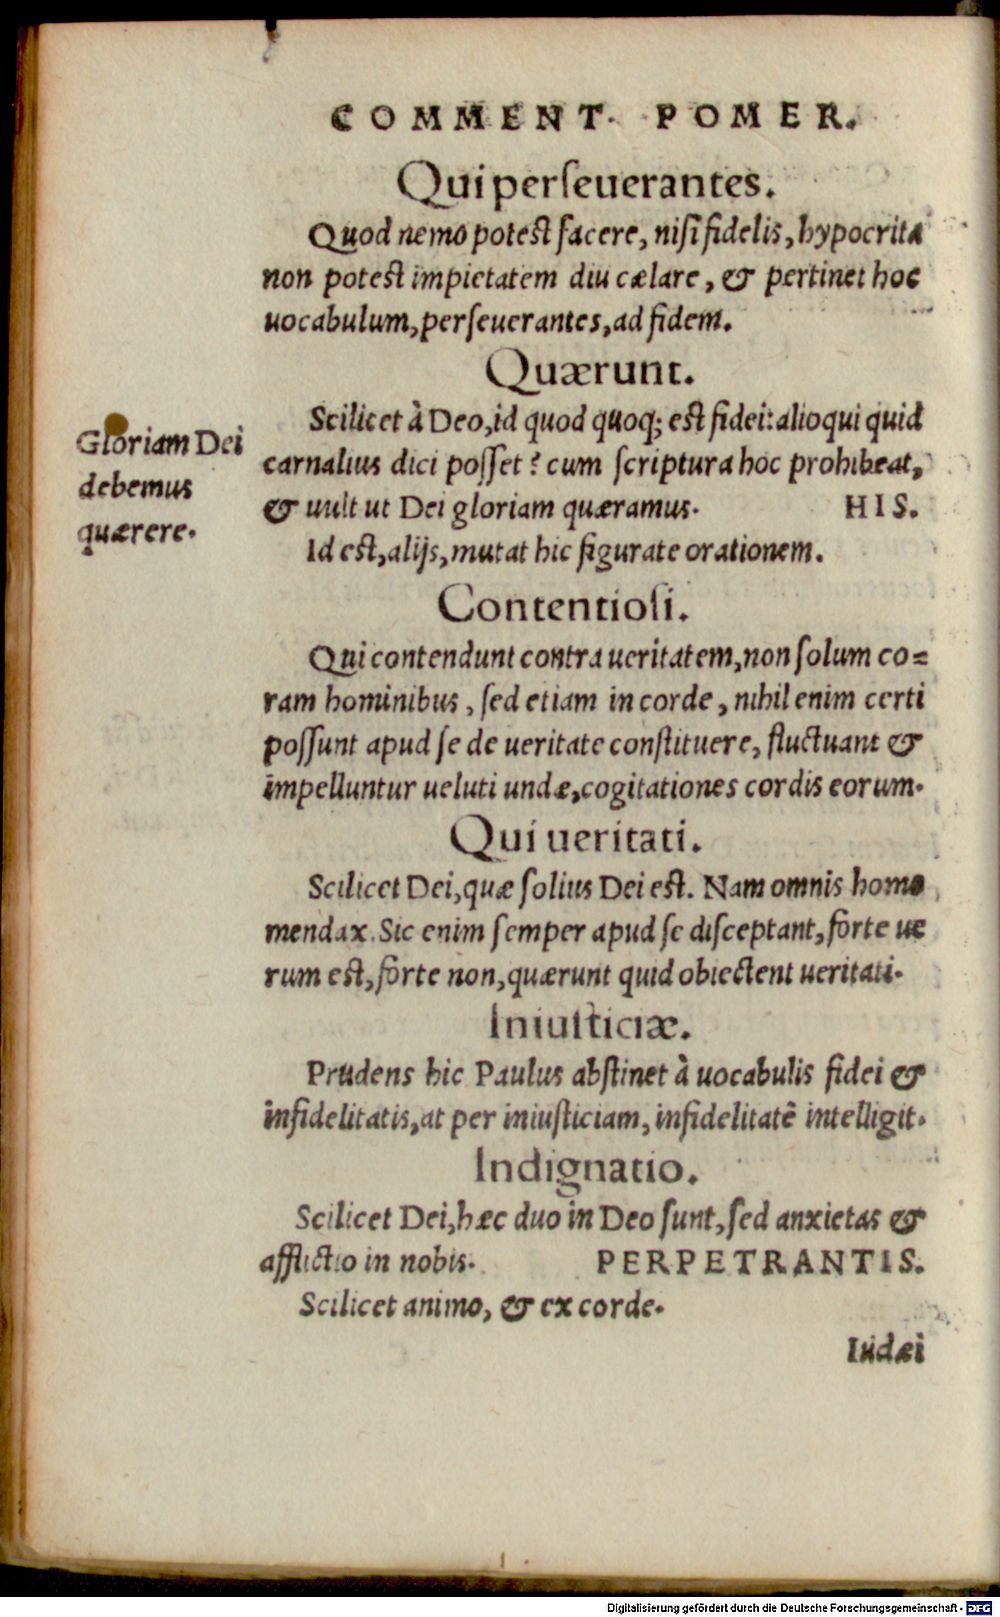 COMMENT. POMER.
Qui perſeuerantes.
Quod nemo poteſt facere, niſi fidelis, hypocrita
non poteſt impietatem diu cælare, & pertinet hoc
uocabulum, perſeuerantes, ad fidem.
Quærunt.
Scilicet à Deo, id quod quoq; eſt fidei: alioqui quid
carnalius dici poſſet? cum ſcriptura hoc prohibeat,
& uult ut Dei gloriam quæramus. HIS.
Id eſt, alijs, mutat hic figurate orationem.
Gloriam Dei
debemus
quærere.
Contentioſi.
Qui contendunt contra ueritatem, non ſolum co=
ram hominibus, ſed etiam in corde, nihil enim certi
poſſunt apud ſe de ueritate conſtituere, fluctuant &
impelluntur ueluti undæ, cogitationes cordis eorum.
Qui ueritati.
Scilicet Dei, quæ ſolius Dei eſt. Nam omnis homo
mendax. Sic enim ſemper apud ſe diſceptant, forte ue
rum eſt, forte non, quærunt quid obiectent ueritati.
Iniuſticiæ.
Prudens hic Paulus abſtinet à uocabulis fidei &
infidelitatis, at per iniuſticiam, infidelitatē intelligit.
Indignatio.
Scilicet Dei, hæc duo in Deo ſunt, ſed anxietas &
afflictio in nobis. PERPETRANTIS.
Scilicet animo, & ex corde.
Iudæi
Digitalisierung gefördert durch die Deutsche Forschungsgemeinschaft - DFG